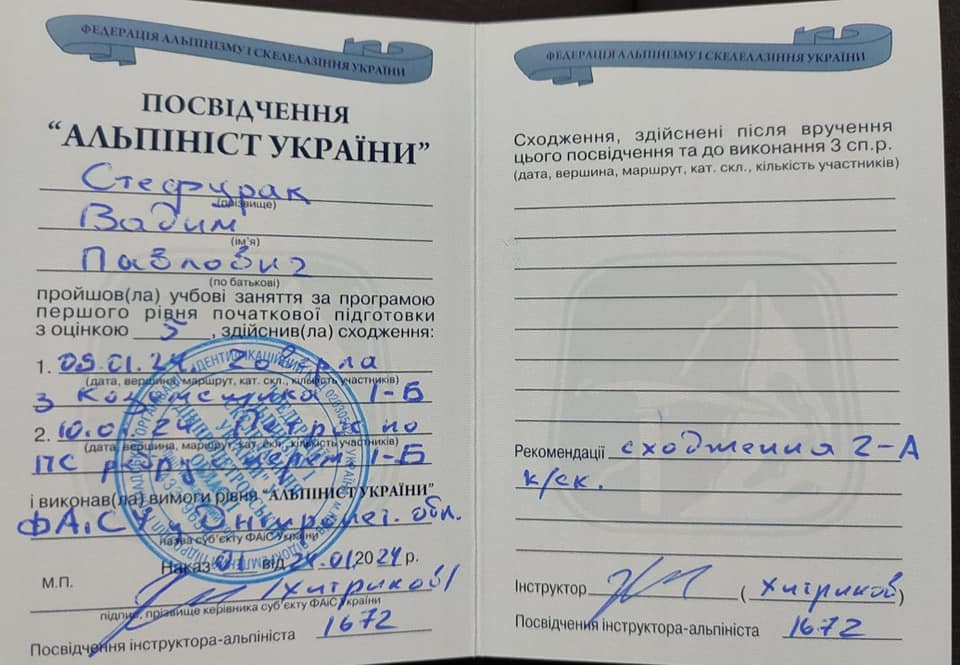 ФЕДЕРАЦІЯ АЛЬПІНІЗМУ І СКЕЛЕЛАЗІННЯ УКРАЇНИ
ПОСВІДЧЕННЯ
“АЛЬПІНІСТ УКРАЇНИ”
Стефурак
(прізвище)
Вадим
(ім’я)
Павлович
(по батькові)
пройшов(ла) учбові заняття за програмою
першого рівня початкової підготовки
з оцінкою 5, здійснив(ла) сходження:
1. 09.01.24. Говерла
(дата, вершина, маршрут, кат. скл., кількість участників)
з Козьмещика 1-Б
2. 10.01.24 Петрос по
(дата, вершина, маршрут, кат. скл., кількість участників)
ПС ребру 1-Б
і виконав(ла) вимоги рівня “АЛЬПІНІСТ УКРАЇНИ”
ФАіСУ у обл.
назва суб’єкту ФАіС України
Наказ 01 від 24.01.2024 р.
М.П. (Хитриков)
підпис, прізвище керівника суб’єкту ФАіС України
Посвідчення інструктора-альпініста 1672
ФЕДЕРАЦІЯ АЛЬПІНІЗМУ І СКЕЛЕЛАЗІННЯ УКРАЇНИ
Сходження, здійснені після вручення
цього посвідчення та до виконання 3 сп.р.
(дата, вершина, маршрут, кат. скл., кількість участників)
Рекомендації сходження 2-А
к/ск.
Інструктор (Хитриков)
Посвідчення інструктора-альпініста 1672